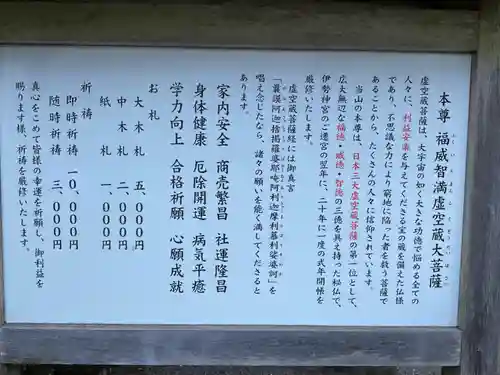 本尊 福威智満虚空蔵大菩薩
虚空蔵菩薩は、大宇宙の如く大きな功徳で悩める全ての
人々に、利益安楽を与えてくださる宝の蔵を備えた仏様
であり、不思議な力により窮地に陥った者を救う菩薩で
あることから、たくさんの人々に信仰されています。
当山の本尊は、日本三大虚空蔵菩薩の第一位として、
広大無辺な福徳・威徳・智徳の三徳を具え持った秘仏で、
伊勢神宮のご遷宮の翌年に、二十年に一度の式年開帳を
厳修いたします。
虚空蔵菩薩経には御真言
「嚢謨阿迦捨掲羅婆耶唵阿利迦摩利慕利娑婆訶」を
唱え念じたなら、諸々の願いを能く満してくださると
あります。
家内安全 商売繁昌 社運隆昌
身体健康 厄除開運 病気平癒
学力向上 合格祈願 心願成就
お札
大木札 五、〇〇〇円
中木札 二、〇〇〇円
紙札 一、〇〇〇円
祈祷
即時祈祷 一〇、〇〇〇円
随時祈祷 三、〇〇〇円
真心をこめて皆様の幸運を祈願し、御利益を
賜りますよう、祈祷を厳修いたします。